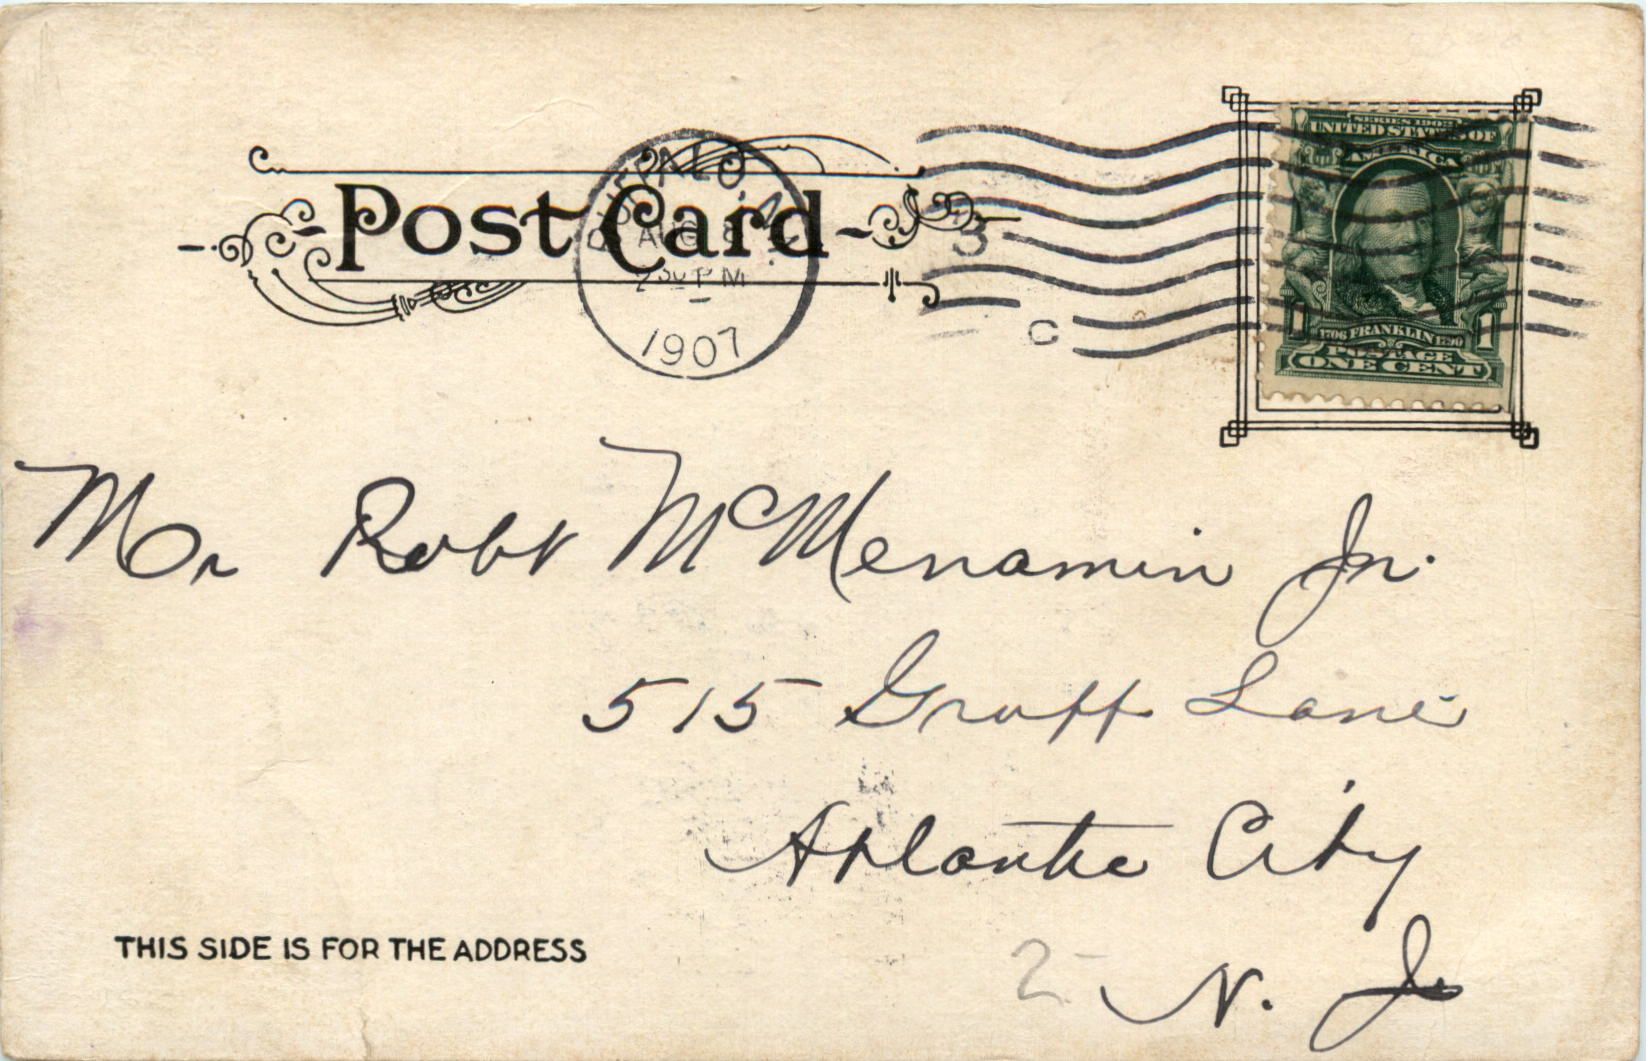 Post Card
BUFFALO, N.Y.
AUG 8
2 30 P M
1907
3
C
SERIES 1902
UNITED STATES OF
AMERICA
1706 FRANKLIN 1790
1 1
POSTAGE
ONE CENT
Mr Robt McMenamin Jr.
515 Groff Lane
Atlantic City
N. J.
2-
THIS SIDE IS FOR THE ADDRESS